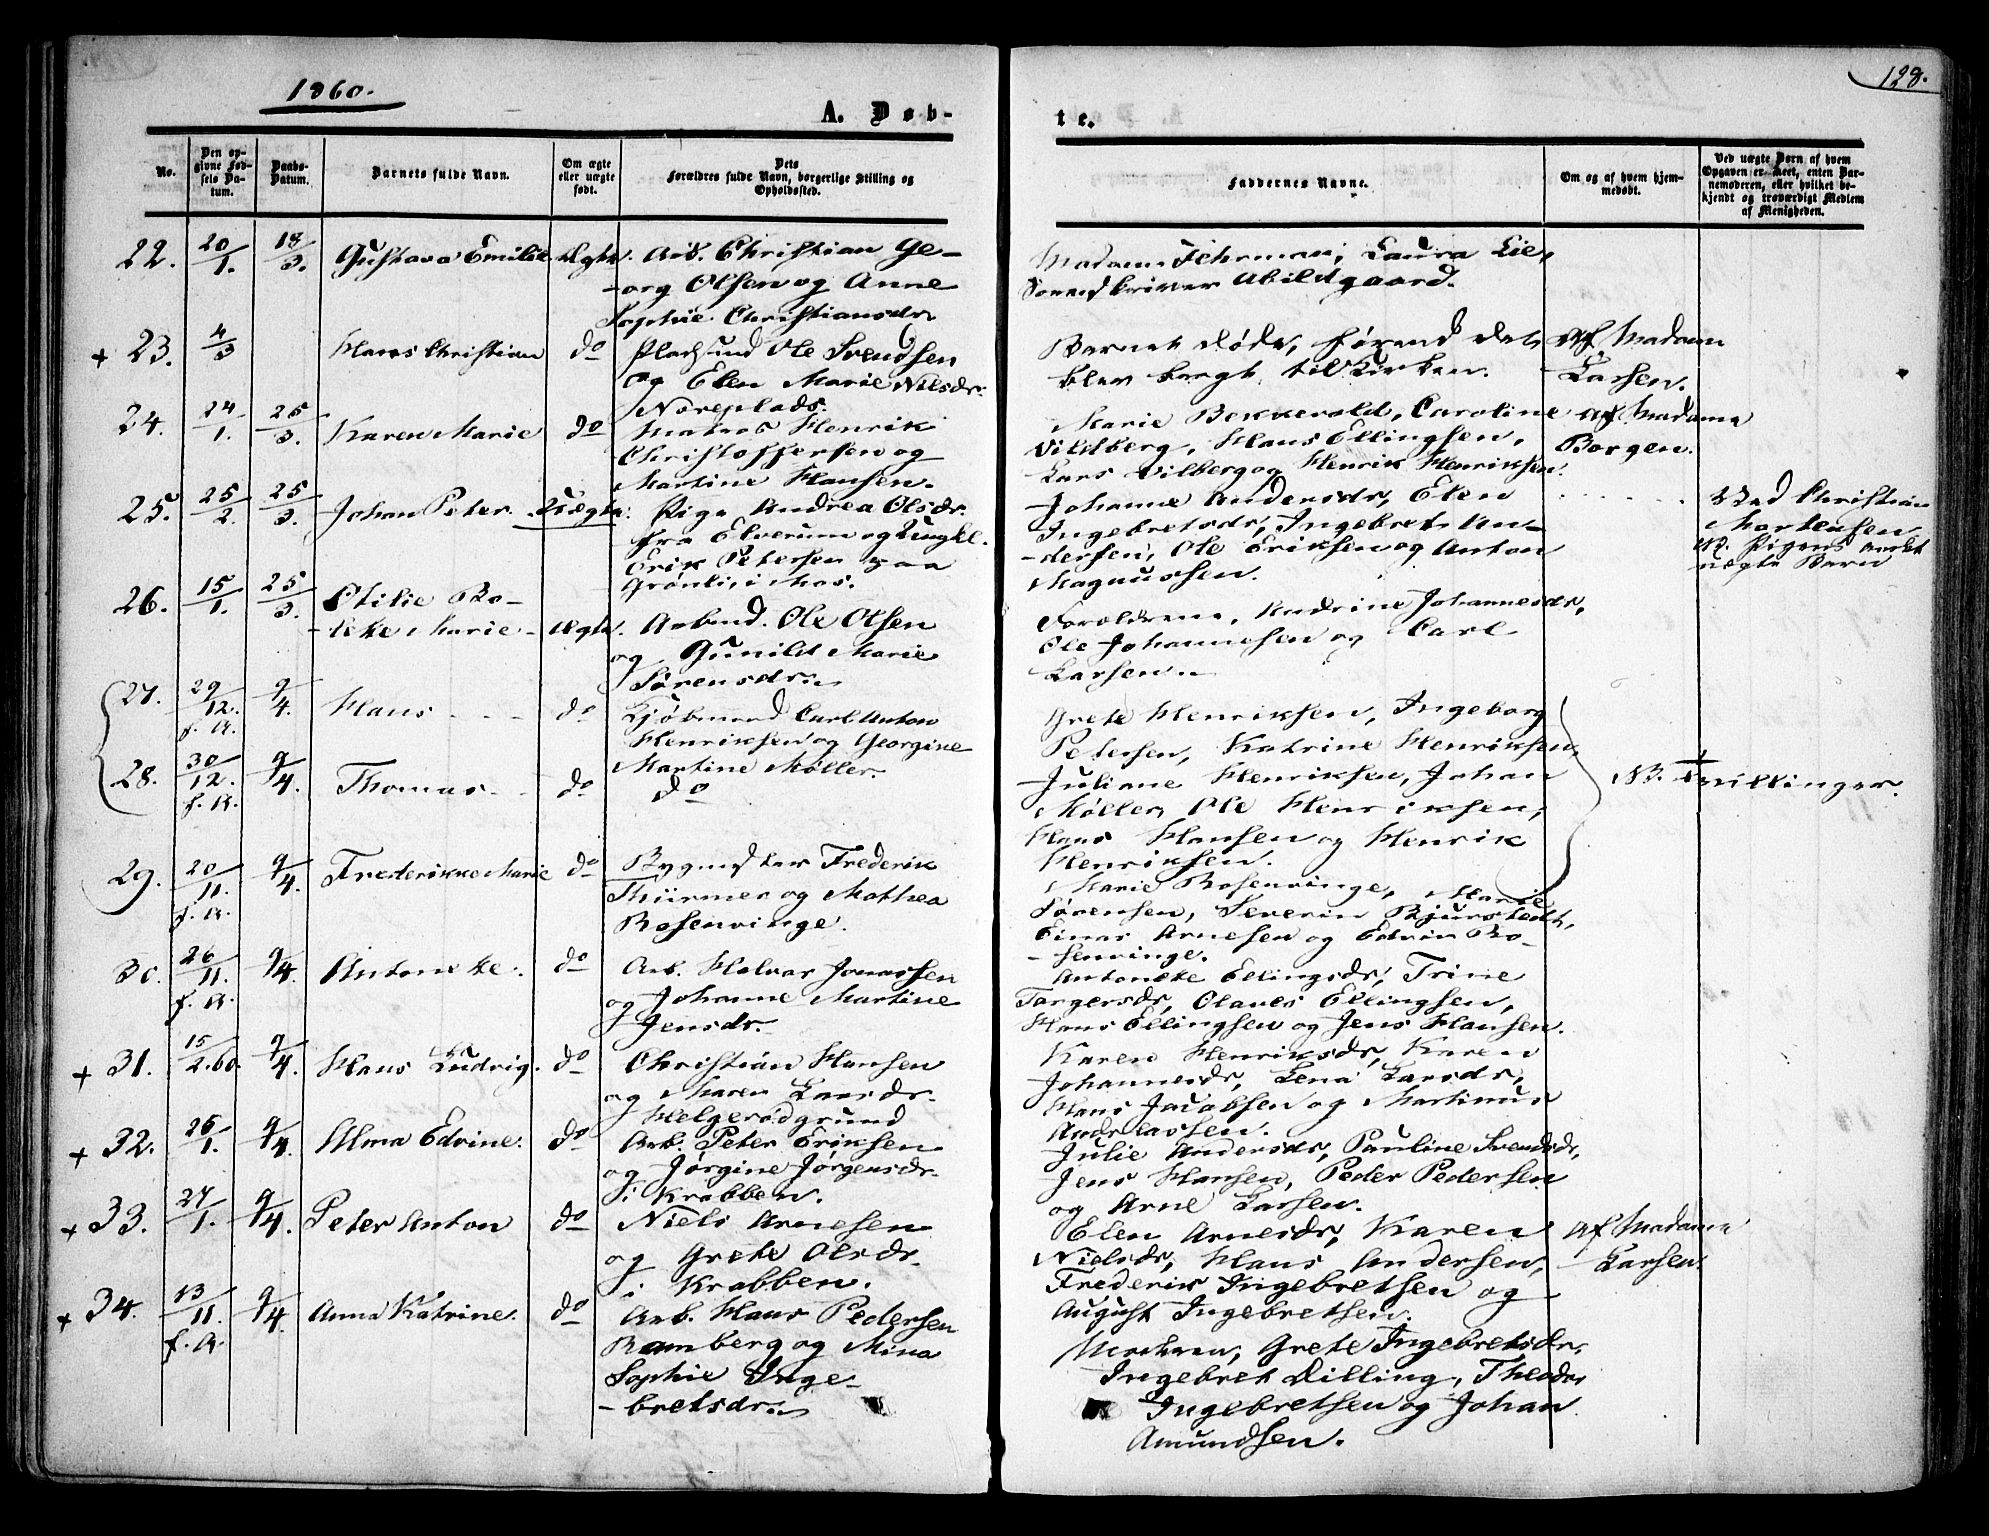 1860.
128.
A. Døb-
te.
No.
Den op-
givne Fød-
sels Da-
tum.
Daabs-
Datum.
Barnets fulde Navn.
Om ægte
eller uægte
født.
Dets
Forældres fulde Navn, borgerlige Stilling og
Opholdssted.
Faddernes Navne.
Om og af hvem hjem-
medøbt.
Ved uægte Børn af hvem
Opgaven er skeet, enten Bar-
nemoderen, eller hvilket be-
kjendt og troværdigt Medlem
af Menigheden.
22. 20/1. 18/3. Gustava Emilie Ægte. Arb. Christian Ge-
org Olsen og Anne
Sophie Christiansdr
Madam Fehrman, Laura Lie,
Sorenskriver Abildgaard.
+ 23. 4/3 Hans Christian do Pladsmd Ole Svendsen
og Elen Marie Nilsdr.
Noreplads.
Barnet døde, førend det
blev bragt til Kirken.
Af Madam
Larsen.
24. 24/1. 25/3. Karen Marie do Matros Henrik
Christoffersen og
Martine Hansen.
Marie Bekkevold, Caroline
Vildberg, Hans Ellingsen,
Lars Vilberg og Henrik Henriksen.
Af Madam
Borgen.
25. 25/2. 25/3. Johan Peter Uægte. Pige Andrea Olsdr.
fra Elverum og Ungkl.
Erik Petersen paa
Grønli, i Mos.
Johanne Andersdr, Elen
Ingebretsdr, Ingebret An-
dersen, Ole Eriksen og Anton
Magnussen.
Ved Christian
Mortensen
NB. Pigens andet
uægte Barn
26. 15/1. 25/3. Otilie Bo-
lette Marie Ægte. Arbmd. Ole Olsen
og Gunild Marie
Sørensdr.
Forældrene, Andrine Johannesdr,
Ole Johannesen og Carl
Larsen
27. 29/12. f.A. 9/4. Hans do Kjøbmand Carl Anton
Henriksen og Georgine
Martine Møller.
28. 30/12. f.A. 9/4. Thomas do do
Grete Henriksen, Ingeborg
Petersen, Katrine Henriksen,
Juliane Henriksen, Johan
Møller, Ole Henriksen,
Hans Hansen og Henrik
Henriksen.
NB. Tvillinger.
29. 20/11. f.A. 9/4. Frederikke Marie do Bygmester Frederik
Thürmer og Mathea
Rosenvinge.
Marie Rosenvinge, Marie
Sørensen, Severin Bjurstedt,
Einar Arnesen og Edvin Ro-
senvinge.
30. 26/11. f.A. 9/4. Antonette. do Arb. Halvor Jonassen
og Johanne Martine
Jensdr.
Antonette Ellingsdr, Trine
Torgersdr, Olaves Ellingsen,
Hans Ellingsen og Jens Hansen.
+ 31. 15/2.60. 9/4. Hans Ludvig. do Christian Hansen
og Maren Larsdr.
Helgerødgrund
Karen Henriksdr, Karen
Johannesdr, Lena Larsdr,
Hans Jacobsen og Martinus
Andreassen.
+ 32. 26/1. 9/4. Alma Edvine. do Arb. Peter Eriksen
og Jørgine Jørgensdr.
i Krabben.
Julie Andersdr, Pauline Svendsdr,
Jens Hansen, Peder Pedersen
og Arne Larsen.
+ 33. 27/1. 9/4. Peter Anton do Niels Arnesen
og Grete Olsdr.
i Krabben.
Elen Arnesdr, Karen
Nielsdr, Hans Andersen,
Frederik Ingebretsen og
August Ingebretsen.
Af Madam
Larsen.
+ 34. 13/11. f.A. 9/4. Anna Katrine. do Arb. Hans Pedersen
Ramberg og Mina
Sophie Inge-
bretsdr.
Moderen, Grete Ingebretsdr,
Ingebret Dilling, Theodor
Ingebretsen og Johan
Amundsen.